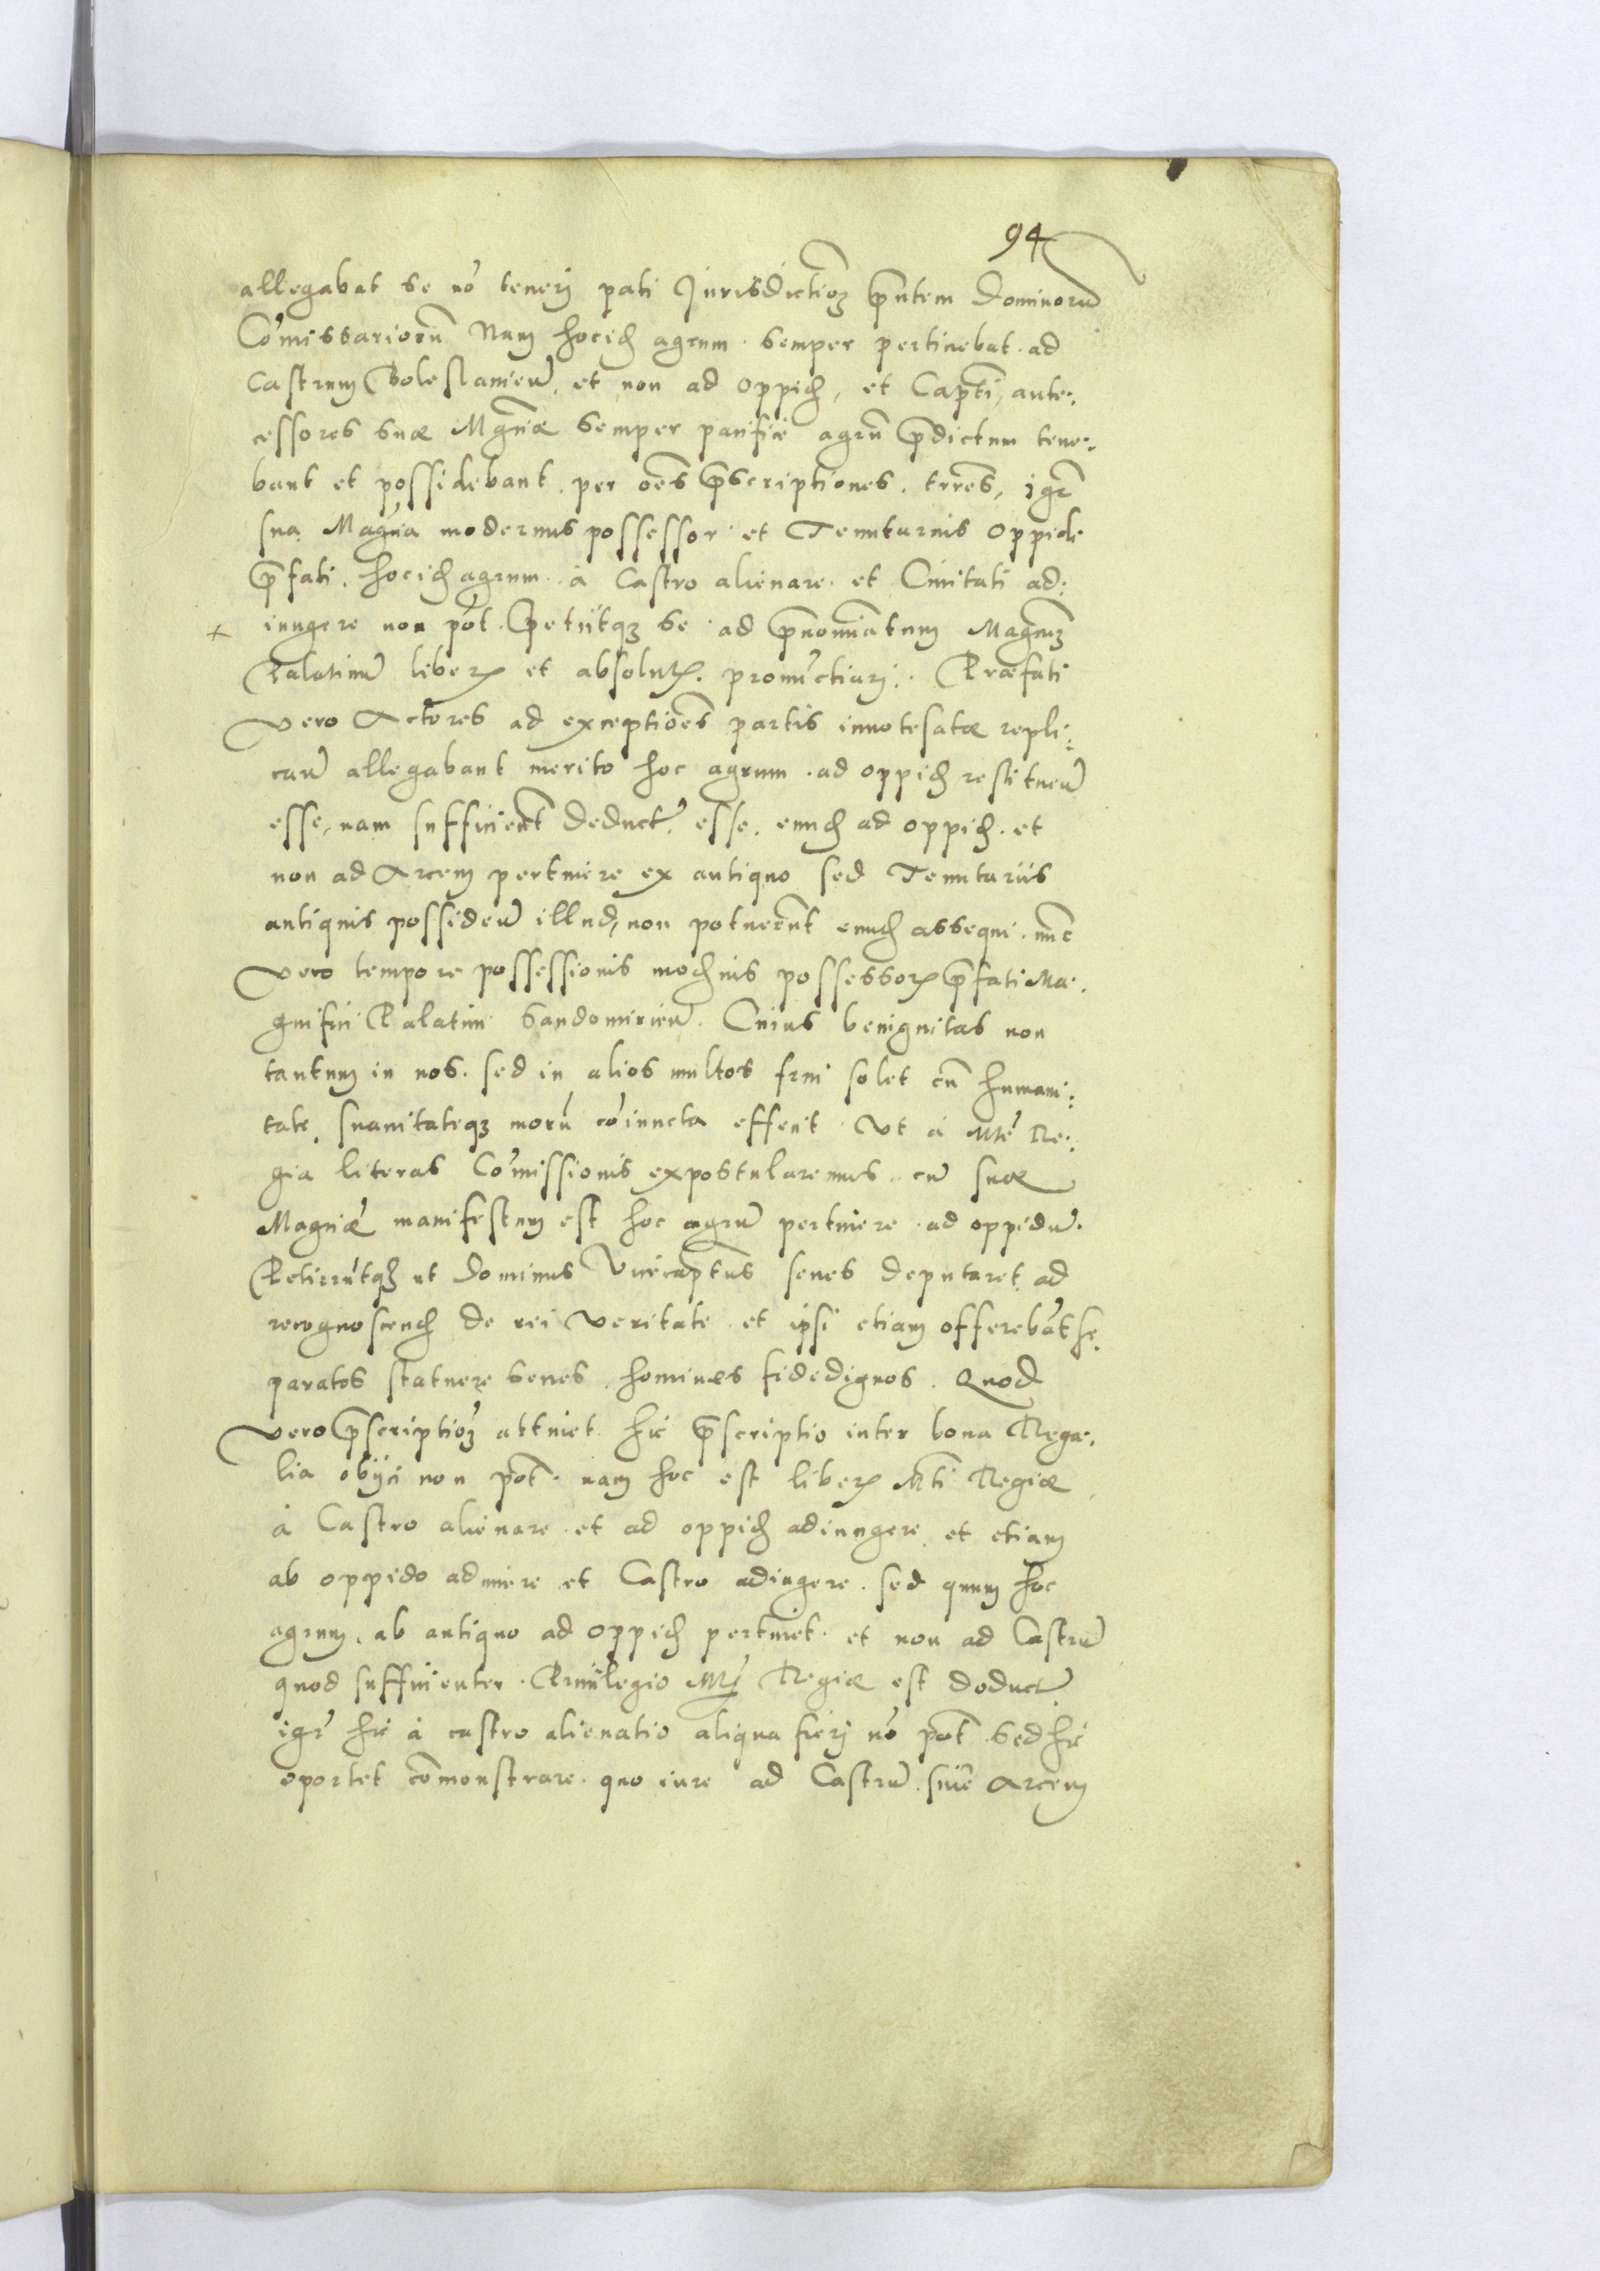 94
allegabat se nō tenerj pati Jurisdictioꝫ p̄ntem Dominorū
Cōmissariorū Nam hocid agrum semper pertinebat ad
Castrum Boleslamień et non ad oppid, et Capti ante:
cessores suæ Mgn̄æ semper pacifice agrū p̄dictum tene:
bant et possidebant per oēs p̄scriptiones trr̄es, igr̄
sua Magn̄a modernus possessor et Tenutarius oppidi
p̄fati hocid agrum à Castro alienare et Civitati ad:
iungere non pōt Petiitqꝫ se ad p̄nominatum Magn̄cuꝫ
Palatinū liberꝫ et absolutꝫ pronūctiarj. Præfati
vero Actores ad exceptiōes partis innotesatæ repli:
cań allegabant merito hoc agrum ad oppid restitueń
esse, nam sufficient̄ deduct̄ esse, eund ad oppid et
non ad Arcem pertinere ex antiquo sed Tenutariis
antiquis possideń illud, non potuerūt eund assequi nūc
vero tempore possessionis modnis possessorꝫ p̄fati Ma:
gnifici Palatini Sandomirień. Cuius benignitas non
tantum in nos sed in alios multos frui solet cū humani:
tate, suavitateqꝫ morū cōiuncta effecit Ut à Mtē Re:
gia literas Cōmissionis expostularemus cū suæ
Magn̄æ manifestum est hoc agrū pertinere ad oppidū.
Petierūtqꝫ ut Dominus Vicecaptūs senes deputaret ad
recognoscend de rei veritate et ipsi etiam offerebāt se
paratos statuere senes homines fidedignos. Quod
vero p̄scriptioꝫ attinet hic p̄scriptio inter bona Rega:
lia obijci non pōt nam hoc est liberꝫ Mti Regiæ
à Castro alienare et ad oppid adiungere et etiam
ab oppido adimere et Castro adiugere. sed quum hoc
agrum ab antiquo ad oppid pertinet et non ad Castrū
quod sufficienter Privilegio Mtꝫ Regiæ est doduct̄
igr̄ hic à castro alienatio aliqua fierj nō pōt Sed hic
oportet cōmonstrare quo iure ad Castrū sive Arcem